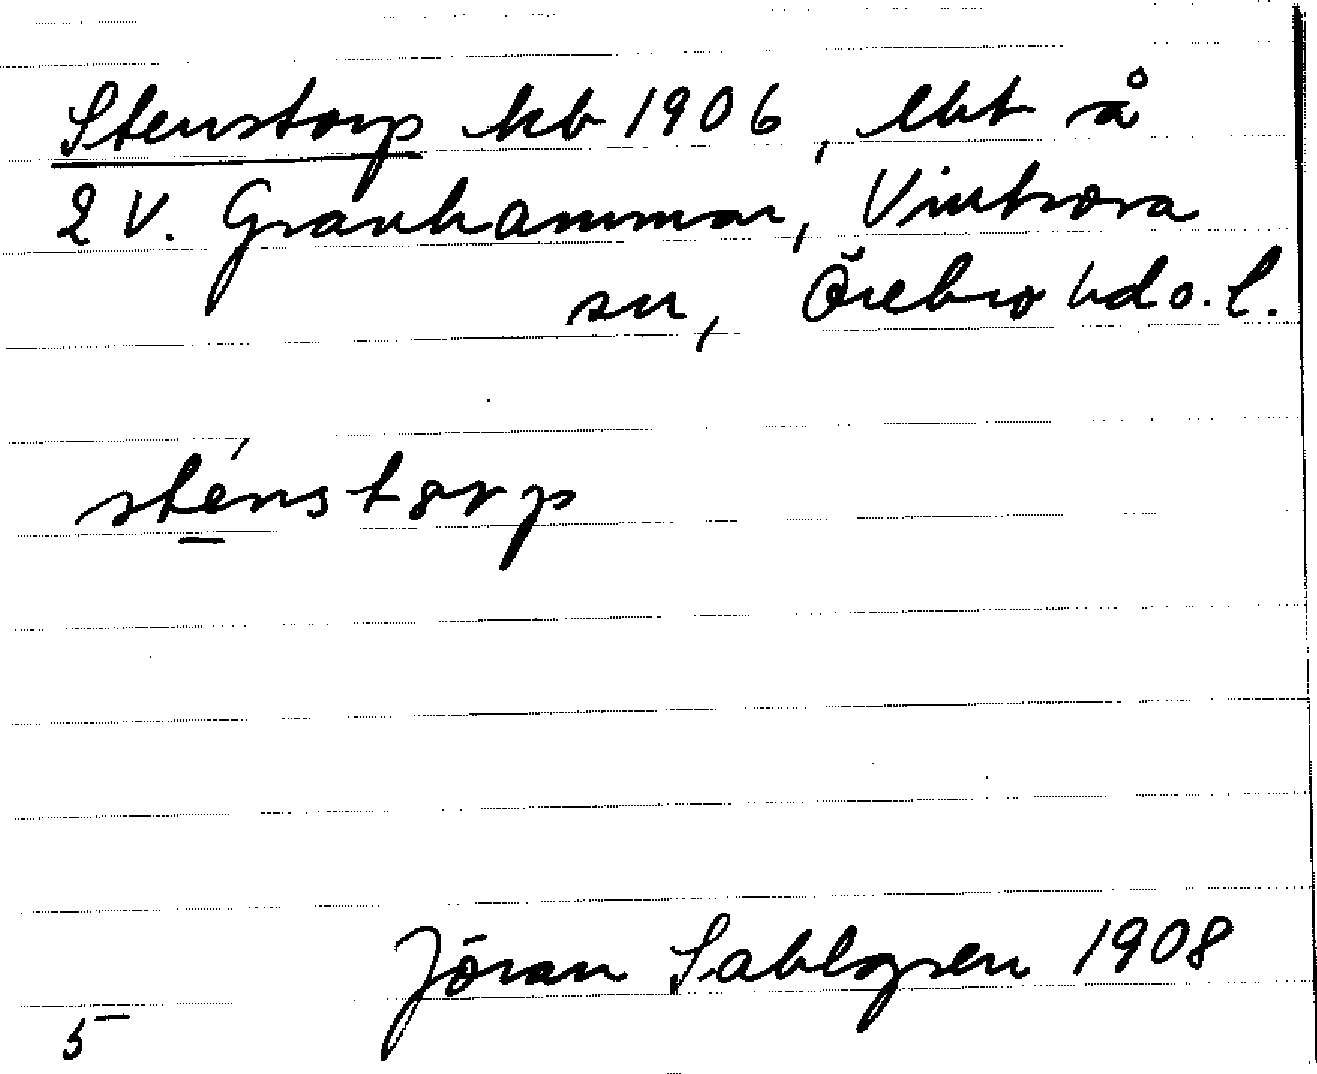 Stenstorp kb 1906, lht å
2 V. Granhammar, Vintrosa
sn, Örebro hd o. l.
sténstorp
Jöran Sahlgren 1908
5